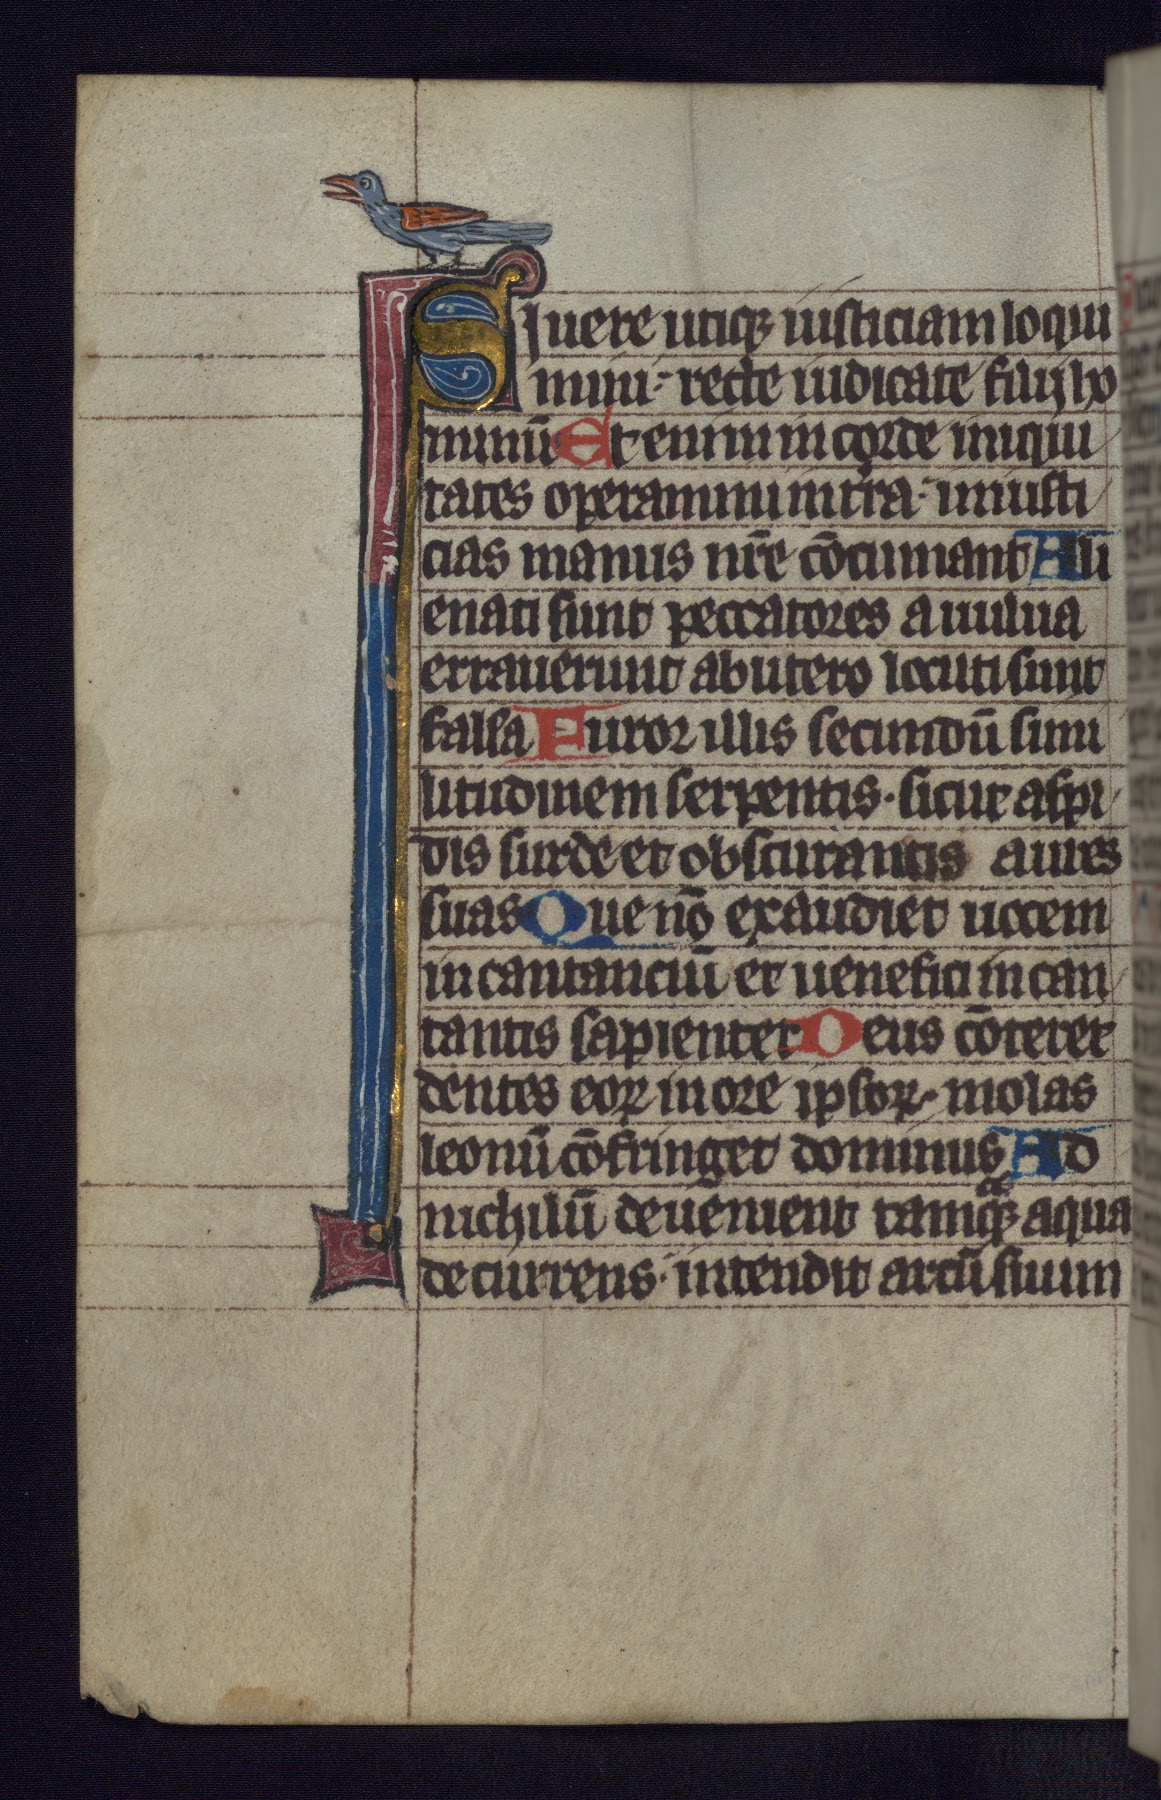 Si uere utiqꝫ iusticiam loqui
mini: recte iudicate filij ho
minū Et enim in corde iniqui
tates operamini in tr̄a: iniusti
cias manus nr̄e cōcinnant Ali
enati sunt peccatores a uulua
errauerunt ab utero locuti sunt
falsa Furor illis secundū simi
litudinem serpentis. sicut aspi
dis surde et obscurantis aures
suas Que nō exaudiet uocem
in cantanciū et uenefici in can
tantis sapienter Deus cōteret
dentes eoꝝ in ore ipsoꝝ. molas
leonū cōfringet dominus Ad
nichilū deuenient tamqꝫ aqua
decurrens. intendit arcū suum